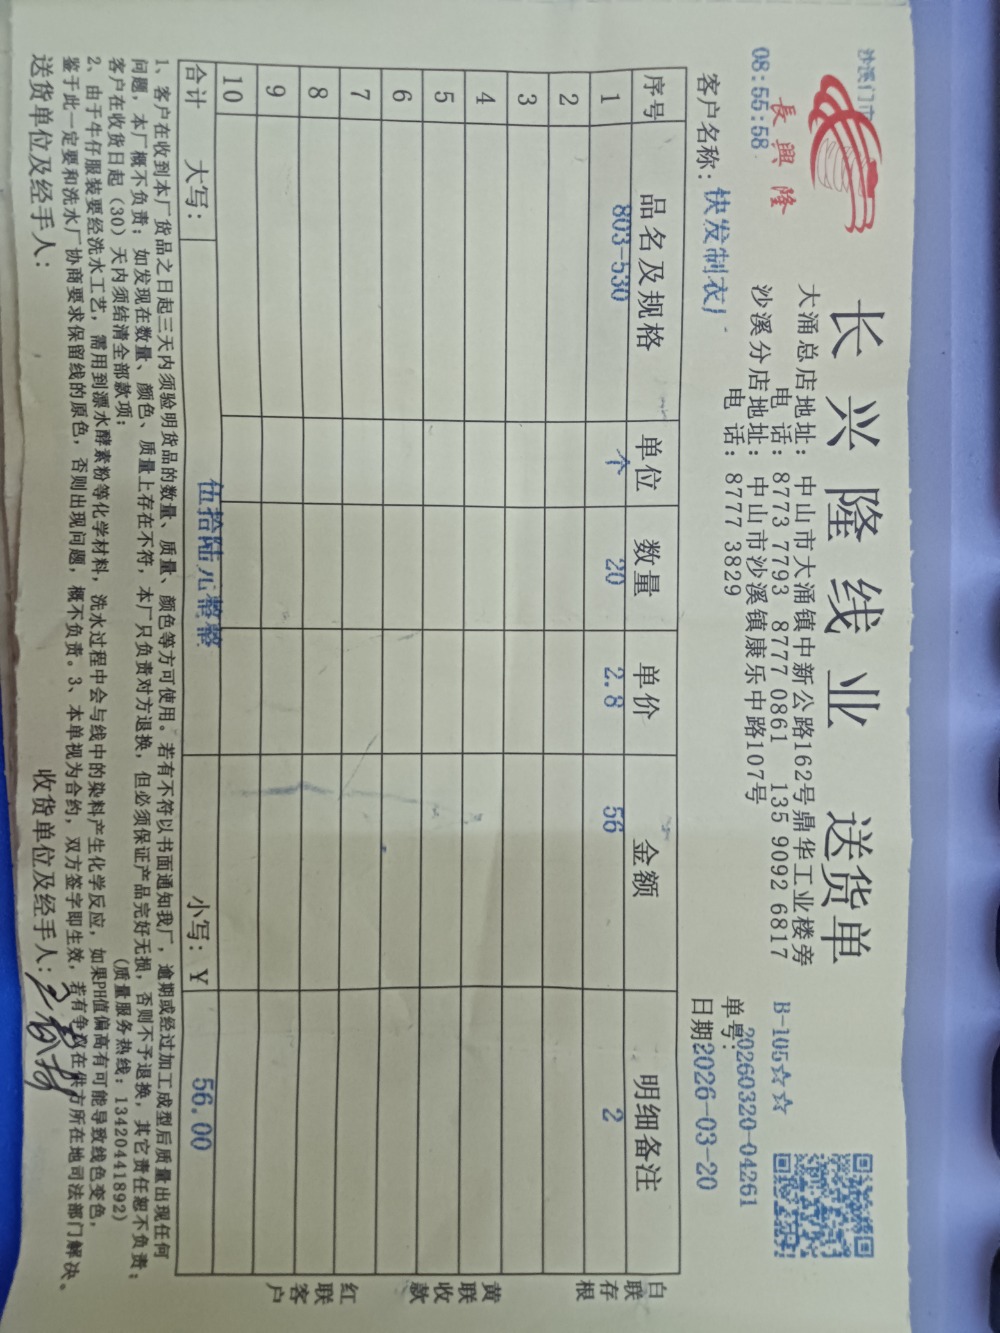 沙溪门市
08:55:58
長興隆
长兴隆线业 送货单
大涌总店地址：中山市大涌镇中新公路162号鼎华工业楼旁
电 话：8773 7793 8777 0861 135 9092 6817
沙溪分店地址：中山市沙溪镇康乐中路107号
电 话：8777 3829
B-105☆☆
单号：20260320-04261
客户名称：快发制衣厂
日期2026-03-20
序号 品名及规格 单位 数量 单价 金额 明细备注
1 803-530 个 20 2.8 56 2
2
3
4
5
6
7
8
9
10
合计 大写： 伍拾陆元整整 小写：¥ 56.00
白联存根
黄联收款
红联客户
1、客户在收到本厂货品之日起三天内须验明货品的数量、质量、颜色等方可使用。若有不符以书面通知我厂，逾期或经过加工成型后质量出现任何
问题，本厂概不负责；如发现在数量、颜色、质量上存在不符，本厂只负责对方退换，但必须保证产品完好无损，否则不予退换，其它责任恕不负责；
客户在收货日起（30）天内须结清全部款项； （质量服务热线：13420441892）
2、由于牛仔服装要经洗水工艺，需用到漂水酵素粉等化学材料，洗水过程中会与线中的染料产生化学反应，如果PH值偏高有可能导致线色变色，
鉴于此一定要和洗水厂协商要求保留线的原色，否则出现问题，概不负责。3、本单视为合约，双方签字即生效，若有争议在供方所在地司法部门解决。
送货单位及经手人： 收货单位及经手人：